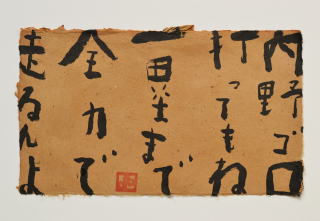 内野ゴロ
打ってもね
一塁まで
全力で
走るんよ